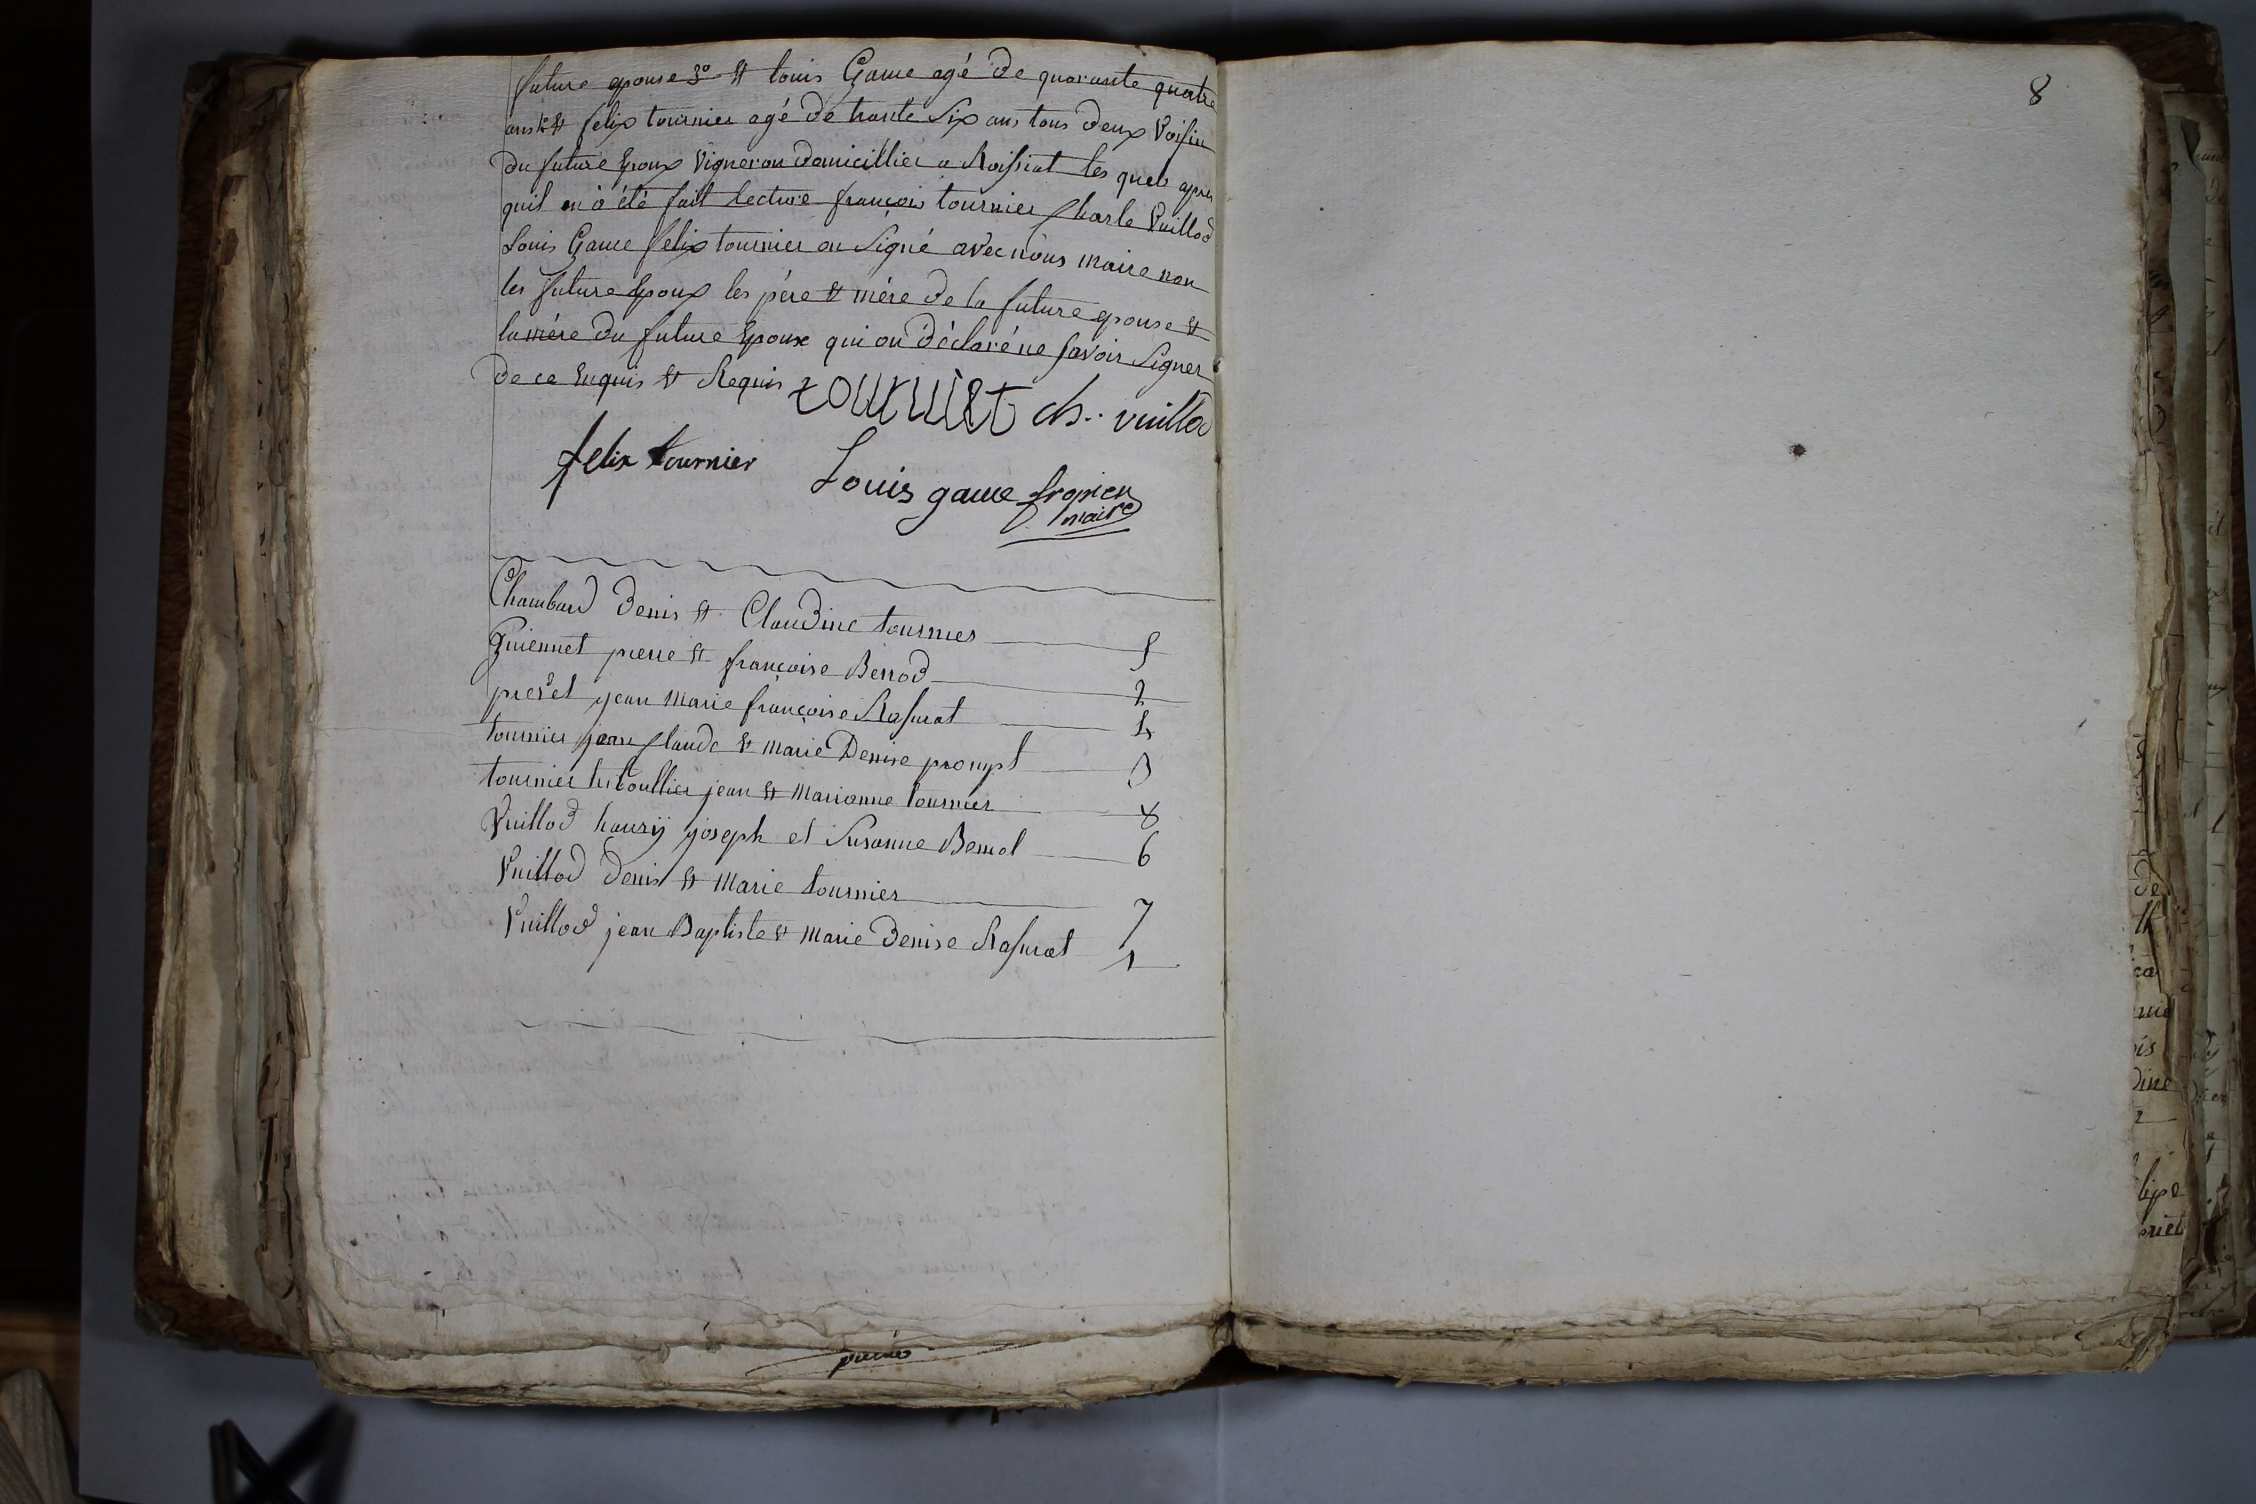 future epouse 3° & louis Game agé de quarante quatre
ans & felix tournier agé de trante Six ans tous deux Voisin
du future Epoux Vigneron domicillier a Roissiat les quels apres
quil en à été fait lecture françois tournier Charle Vuillod
Louis Game felix tournier on Signé avec nous maire non
les future Epoux les père & mère de la future epouse &
la mère du future Epoux qui on déclaré ne Savoir Signer
de ce Enquis & Requis tournier ch. vuillod
felix tournier
Louis game
maire
Chambard Denis & Claudine tournier 5
Guiennet pierre & françoise Berrod 2
prevel jean marie françoise Rassurat 4
tournier jean Claude & marie Denise prompt 3
tournier jean & Marianne tournier 8
Vuillod henrÿ joseph et Susanne 6
Vuillod Denis & marie tournier 7
Vuillod jean Baptiste & marie Denise Rassurat 1
8